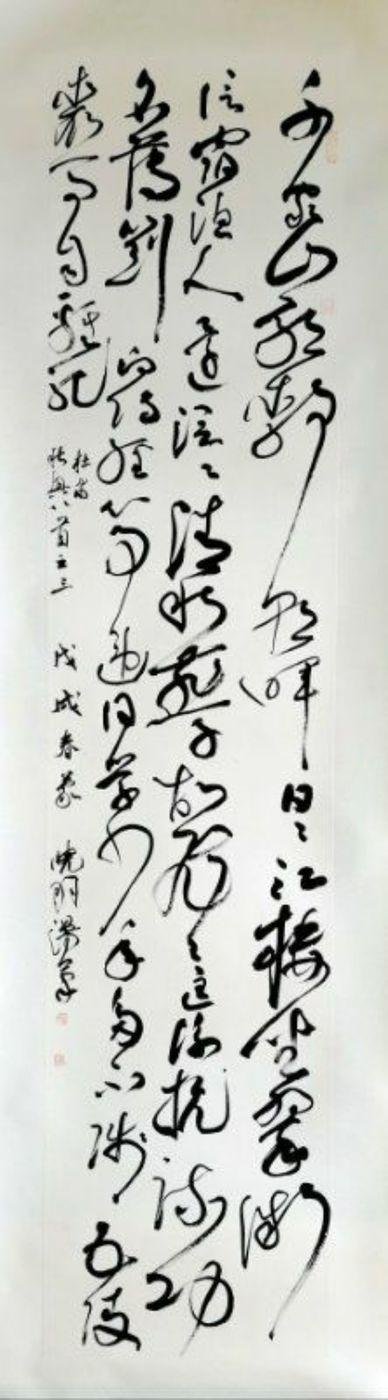 千家山郭靜朝暉日日江樓坐翠微
信宿漁人還泛泛清秋燕子故飛飛匡衡抗疏功
名薄劉向傳經心事違同學少年多不賤五陵
裘馬自輕肥
杜甫
秋興八首之三 戊戌春暮